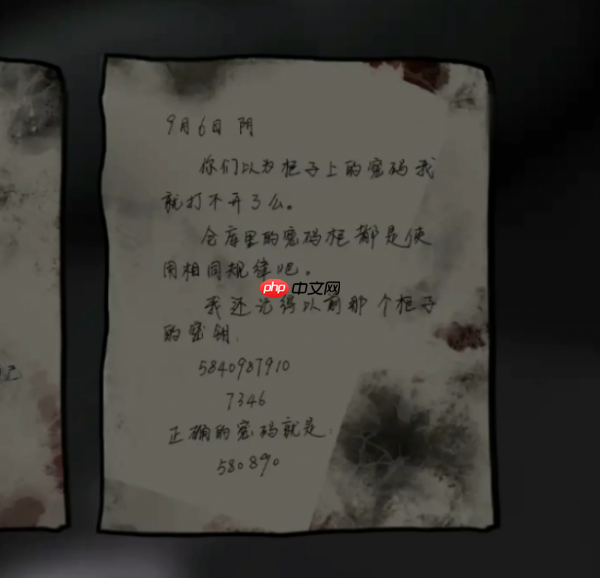 9月6日 阴
你们以为柜子上的密码我
就打不开了么。
仓库里的密码柜都是使
用相同规律吧。
php 中文网
我还记得以前那个柜子
的密钥.
5840987910
7346
正确的密码就是:
580890
己